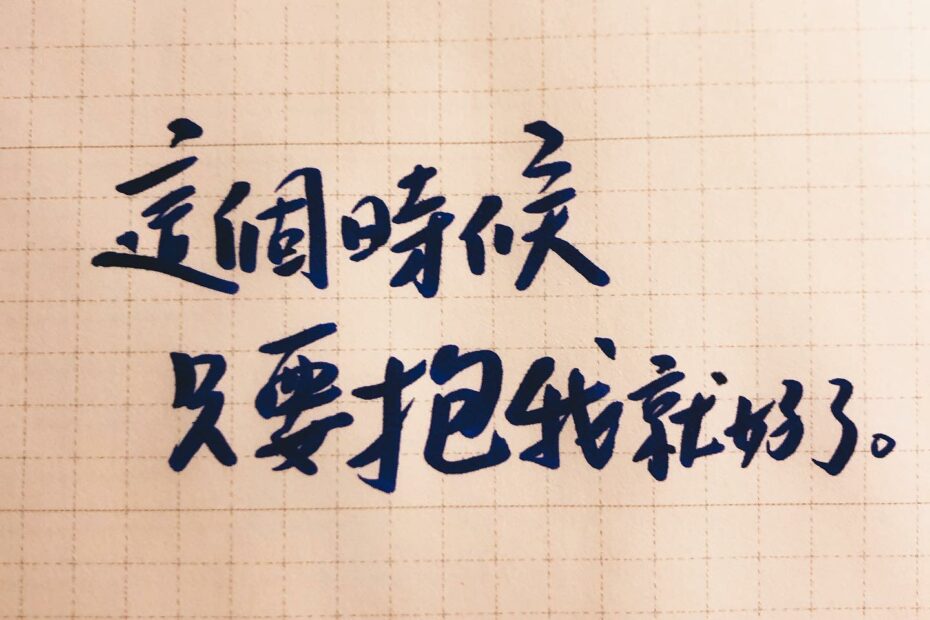 這個時候
只要抱我就好了。